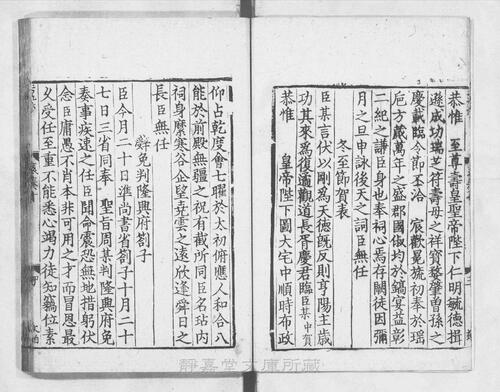 恭惟　至尊壽皇聖帝陛下仁明毓德揖
遜成功瑞芝符壽母之祥寶鼇肇曾孫之
慶載臨令節丕洽　宸歡晃旒初奉於瑶
卮方歲萬年之盛郡國俶均於鎬宴益彰
二紀之謙臣身也奉祠心焉存闕徒因彌
月之旦申詠後天之詞臣無任
冬至節賀表
臣某言伏以剛長為天德既反則亨陽主歲
功其來為復適觀道長胥慶君臨臣某中賀
恭惟　皇帝陛下圖大宅中順時布政
仰占乾度會七曜於太初俯應人和合八
能於前殿無疆之祝有截所同臣名玷內
祠身縻寒谷企望堯雲之遠欣逢舜日之
長臣無任
辤免判隆興府劄子
臣今月二十日準尚書省劄子十月二十
七日三省同奉　聖旨周某判隆興府免
奏事疾速之任臣聞命震恐無地措躬伏
念臣庸愚不肖本非可用之才而冒恩最
乆受任至重不能悉心竭力徒知竊位素
靜嘉堂文庫所藏